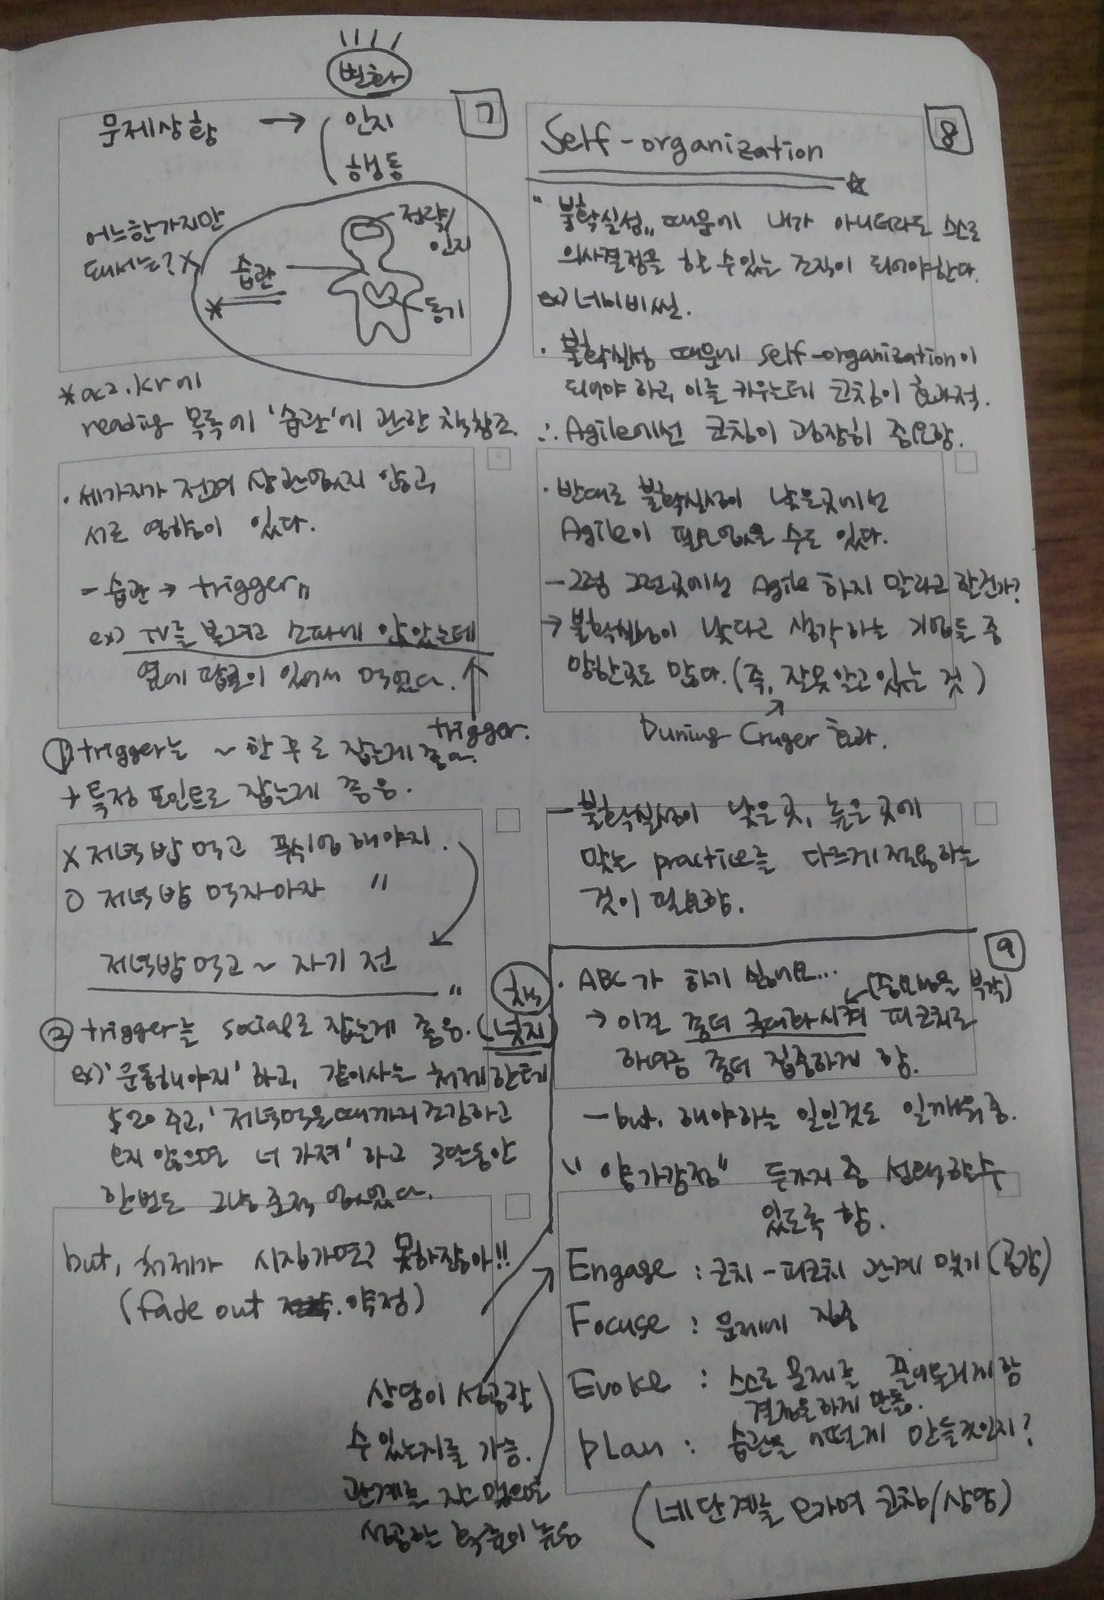 변화
7
문제상황 → 인지
행동
어느한가지만
돼서는? X
전략/
인지
습관
동기
* ac2.kr에
reading 목록에 '습관'에 관한 책참조.
· 세가지가 전혀 상관없지 않고,
서로 영향이 있다.
- 습관 → trigger
ex) TV를 보려고 소파에 앉았는데
옆에 팝콘이 있어서 먹었다.
trigger.
① trigger는 ~한 후로 잡는게 좋음.
+ 특정 포인트로 잡는게 좋음.
X 저녁밥 먹고 푸쉬업 해야지.
O 저녁밥 먹자마자 "
저녁밥 먹고 ~ 자기 전
책
② trigger는 social로 잡는게 좋음. (넛지)
ex) '운동해야지' 하고, 같이사는 처제한테
$20 주고, '저녁먹을때까지 조깅하고
오지 않으면 너 가져' 하고 3달동안
한번도 그냥 준적 없었다.
but, 처제가 시집가면? 못하잖아!!
(fade out 약정)
상담이 성공할
수 있는지를 가늠.
관계를 잘 맺으면
성공할 확률이 높음
8
Self-organization
" 불확실성 " 때문에 내가 아니더라도 스스로
의사결정을 할 수 있는 조직이 되어야한다.
ex) 네이비씰.
· 불확실성 때문에 self-organization이
되어야 하고, 이를 키우는데 코칭이 효과적.
∴ Agile에선 코칭이 굉장히 중요함.
· 반대로 불확실성이 낮은곳에선
Agile이 필요없을 수도 있다.
- 그럼 그런곳에선 Agile 하지 말라고 할건가?
→ 불확실성이 낮다고 생각하는 기업들 중
망한곳도 많다. (즉, 잘못 알고 있는 것)
Duning Cruger 효과.
- 불확실성이 낮은 곳, 높은 곳에
맞는 practice를 다르게 적용하는
것이 필요함.
9
· ABC가 하기 싫어요...
(중요성을 부각)
→ 이걸 좀더 극대화시켜 피코치로
하여금 좀더 집중하게 함.
- but, 해야하는 일인것도 일깨워 줌.
" 양가감정 " 두가지 중 선택할수
있도록 함.
Engage : 코치 - 피코치 관계 맺기 (공감)
Focuse : 문제에 집중
Evoke : 스스로 문제를 끌어올리게 함
결정을하게 만듦.
plan : 습관을 어떻게 만들것인지?
(네단계를 오가며 코칭/상담)